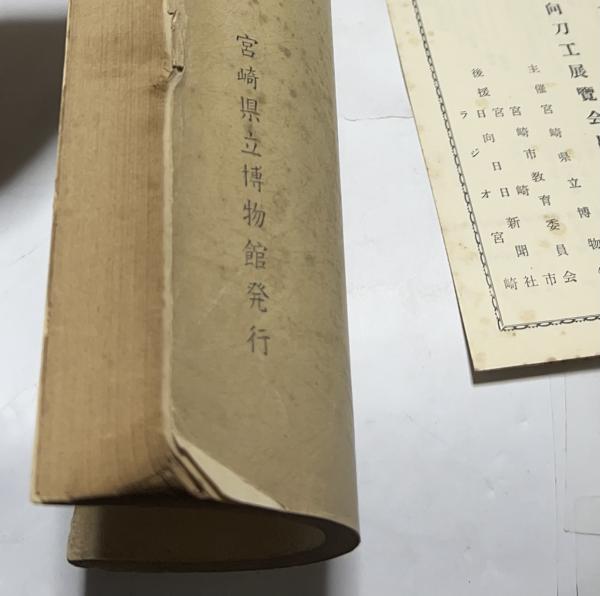 向刀工展覽会
主催宮崎県立博物
宮崎市教育委員会
宮崎市
後援日向日日新聞社
ラジオ宮崎
宮崎県立博物館発行